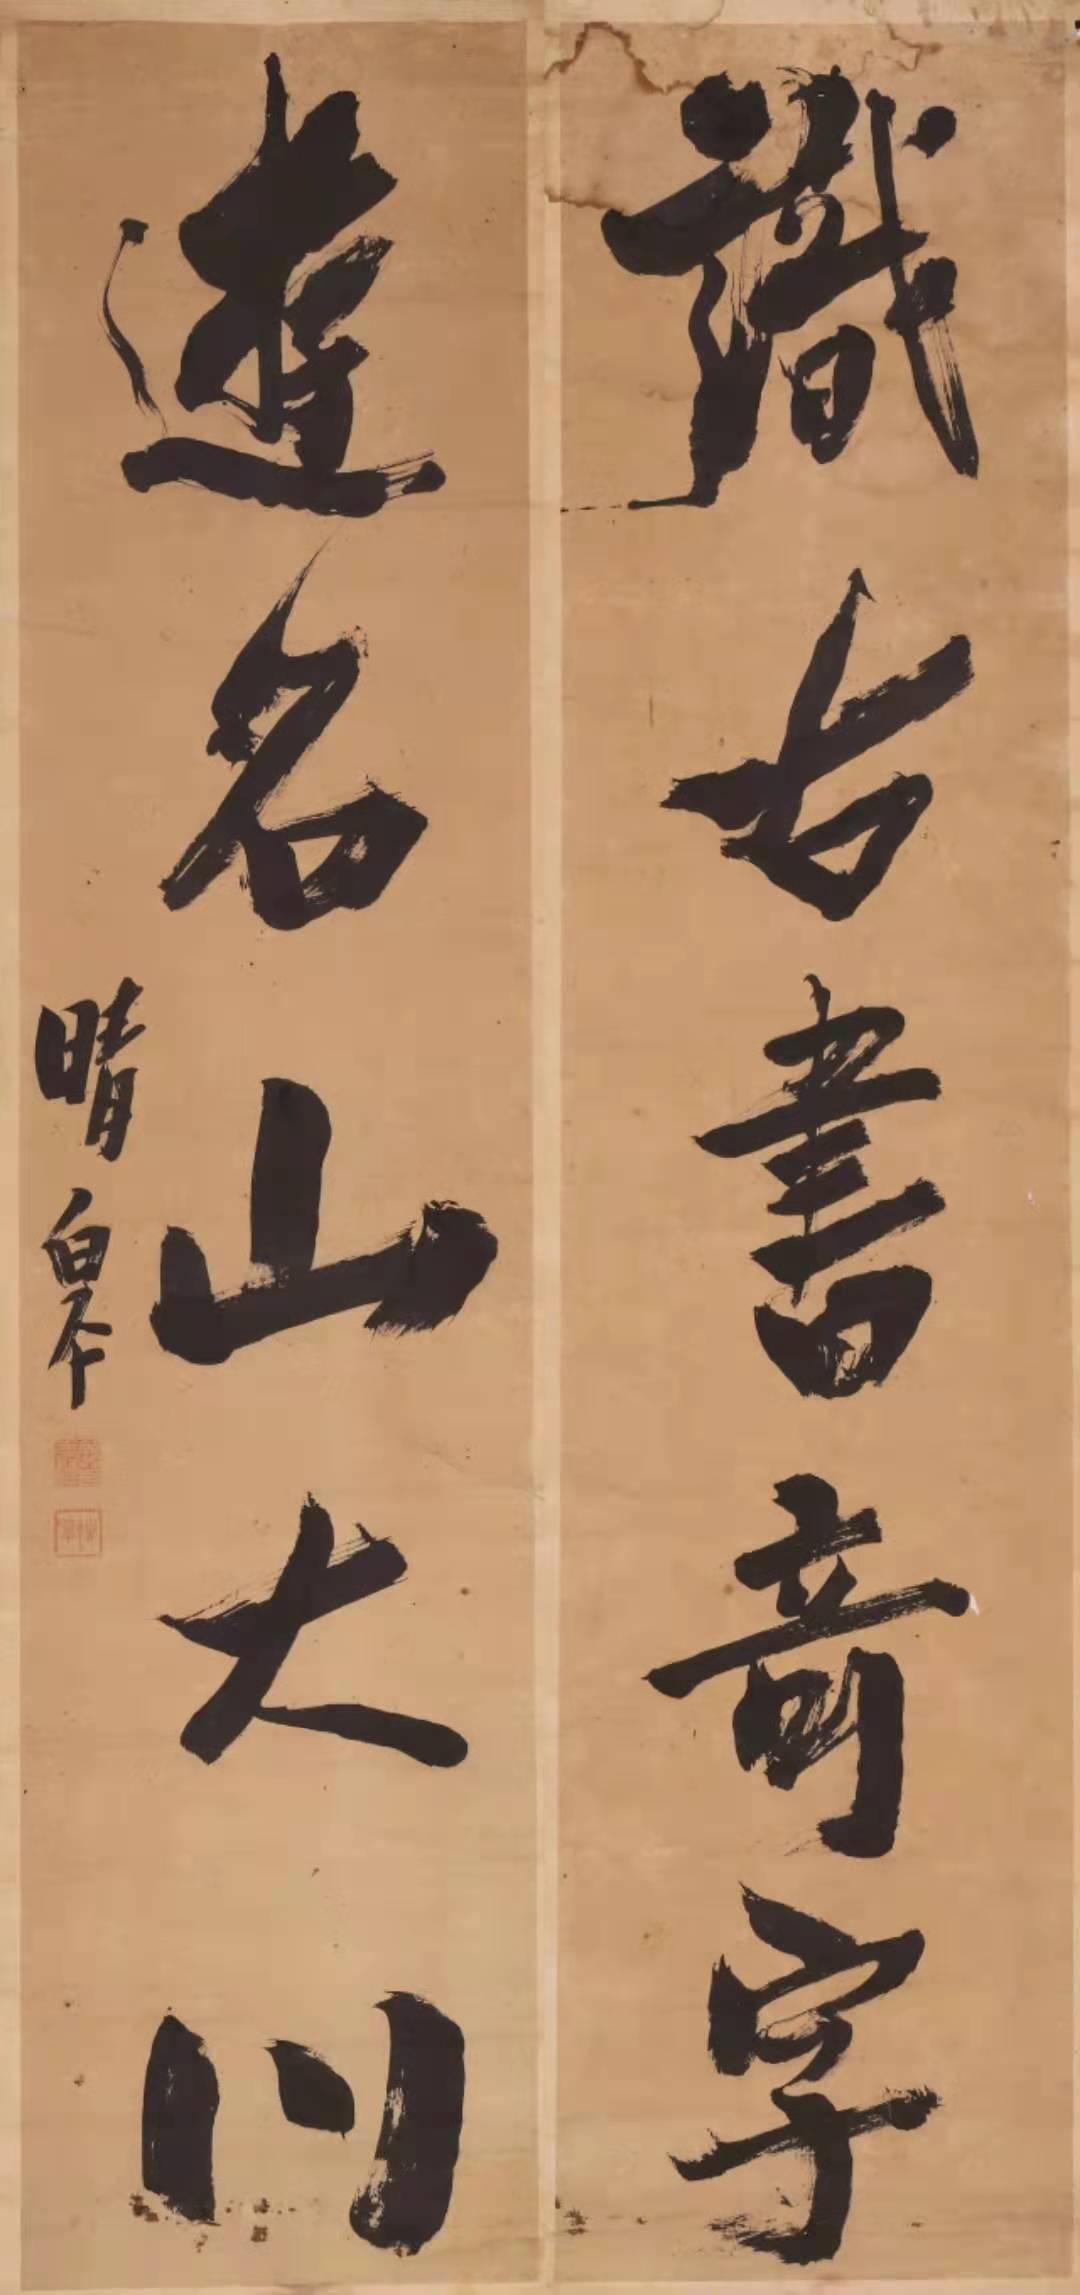 識古書奇字
遊名山大川
晴皋